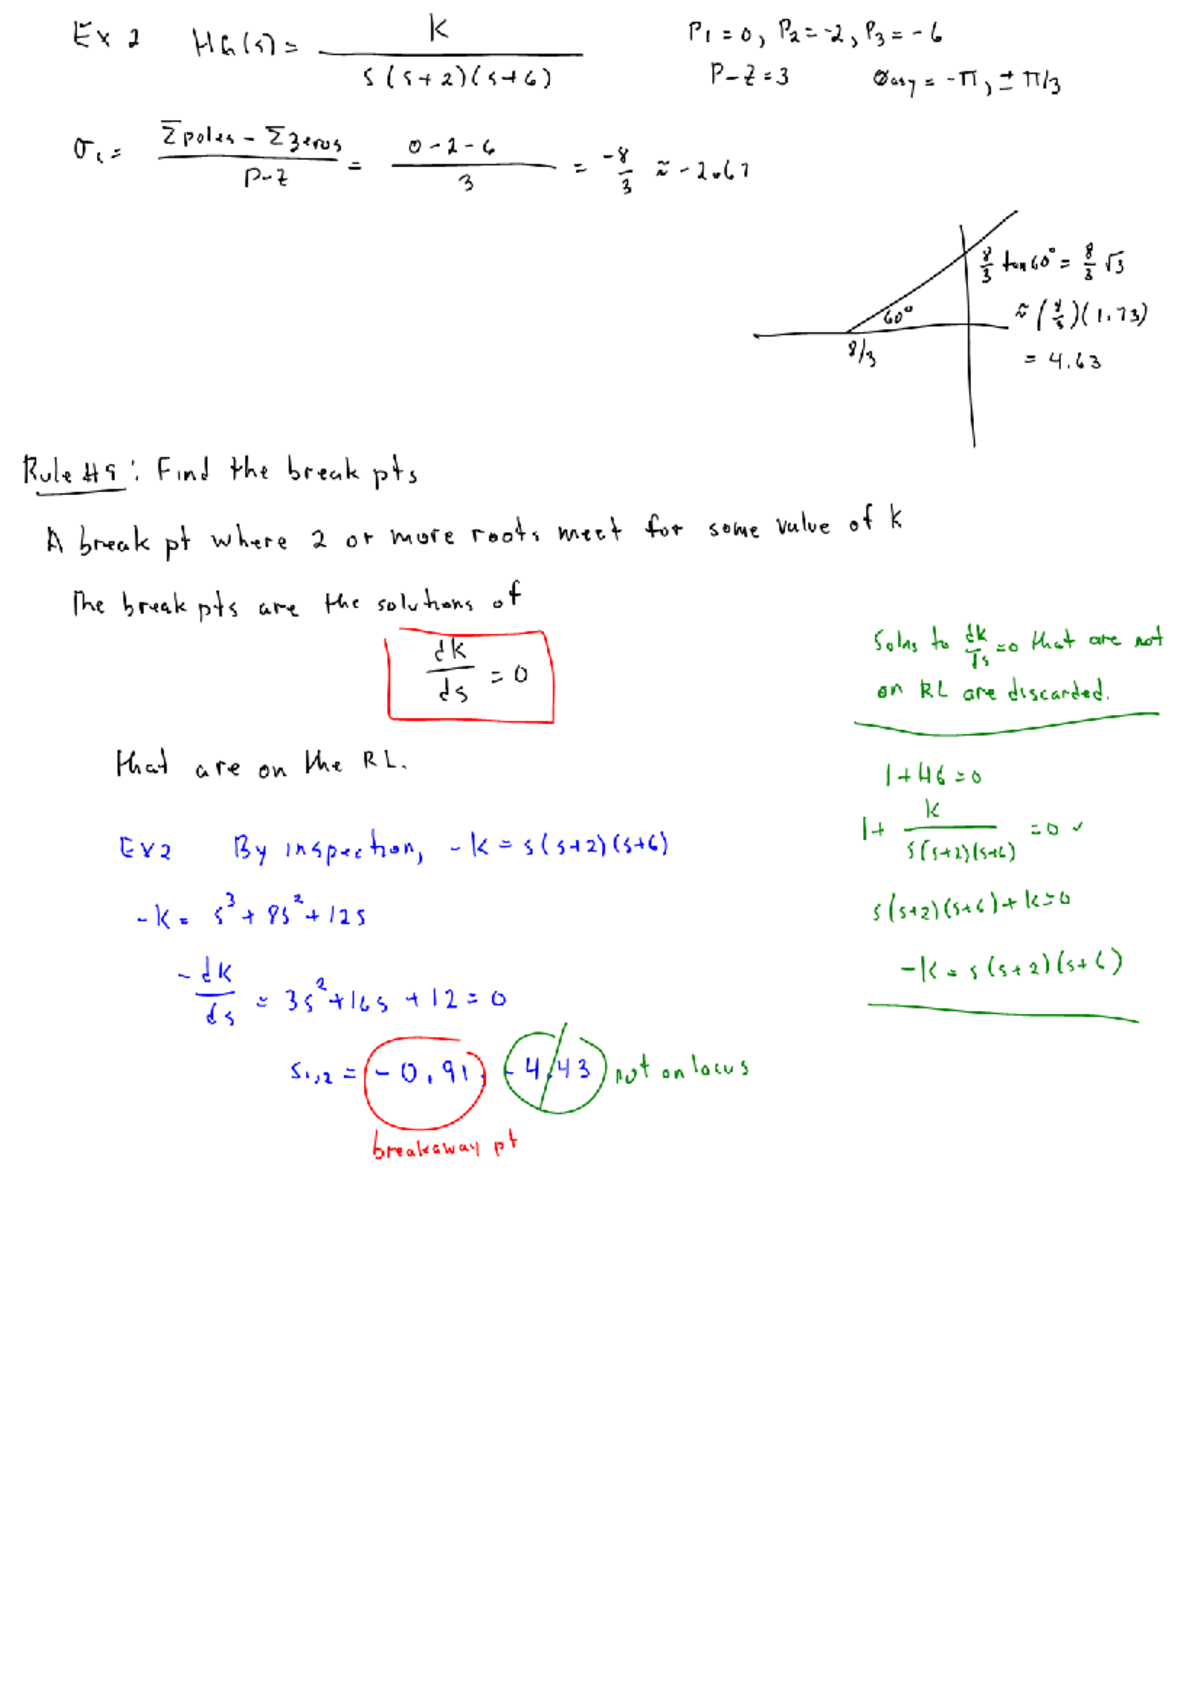 Ex 2 HG(s) = K / s(s+2)(s+6)
P1 = 0, P2 = -2, P3 = -6
P-Z = 3 Øasy = -π, ± π/3
σ1 = Σpoles - Σzeros / P-Z = 0-2-6 / 3 = -8/3 ≈ -2.67
8/3 tan60° = 8/3 √3
60°
≈ (8/3)(1.73)
8/3
= 4.63
Rule #9: Find the break pts
A break pt where 2 or more roots meet for some value of K
The break pts are the solutions of
dK/ds = 0
Solns to dK/ds = 0 that are not
on RL are discarded.
that are on the RL.
1+HG=0
1+ K / s(s+2)(s+6) = 0 ✓
s(s+2)(s+6)+K=0
-K = s(s+2)(s+6)
Ex2 By inspection, -K = s(s+2)(s+6)
-K = s³ + 8s² + 12s
-dK/ds = 3s² + 16s + 12 = 0
s1,2 = -0.91, -4.43 not on locus
breakaway pt